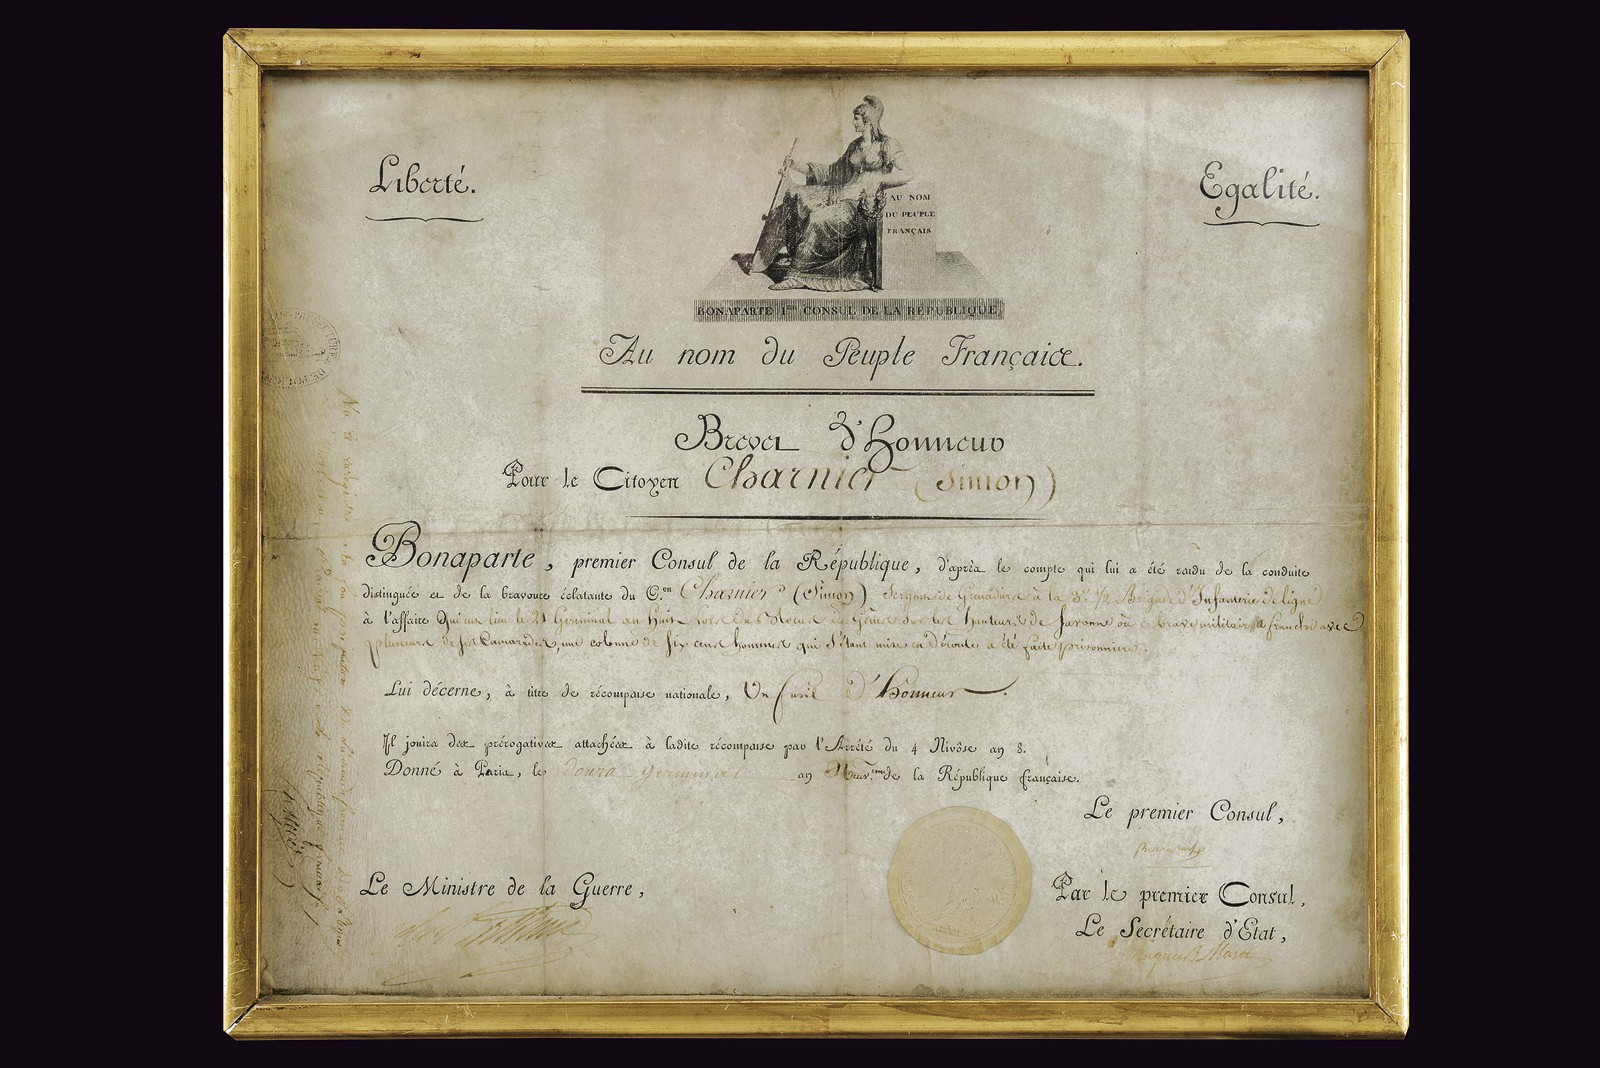 Liberté.
Egalité.
AU NOM
DU PEUPLE
FRANÇAIS
BONAPARTE 1er CONSUL DE LA RÉPUBLIQUE
Au nom du Peuple Français.
Brevet d'Honneur
Pour le Citoyen Charnier (Simon)
Bonaparte, premier Consul de la République, d'après le compte qui lui a été rendu de la conduite
distinguée et de la bravoure éclatante du C.en Charnier (Simon) Sergent de Grenadiers à la 3e 1/2 Brigade d'Infanterie de ligne
à l'affaire qui eut lieu le 21 Germinal an Huit lors du Blocus de Gênes sur les hauteurs de Savonne où ce brave militaire a franchi avec
plusieurs de ses Camarades, une colonne de six cens hommes qui s'étant mise en déroute a été faite prisonniere.
Lui décerne, à titre de récompense nationale, Un fusil d'honneur.
Il jouira des prérogatives attachées à ladite récompense par l'Arrêté du 4 Nivôse an 8.
Donné à Paris, le germinal an Neuv.eme de la République française.
Le premier Consul,
Le Ministre de la Guerre,
Par le premier Consul,
Le Secrétaire d'Etat,
Hugues B. Maret